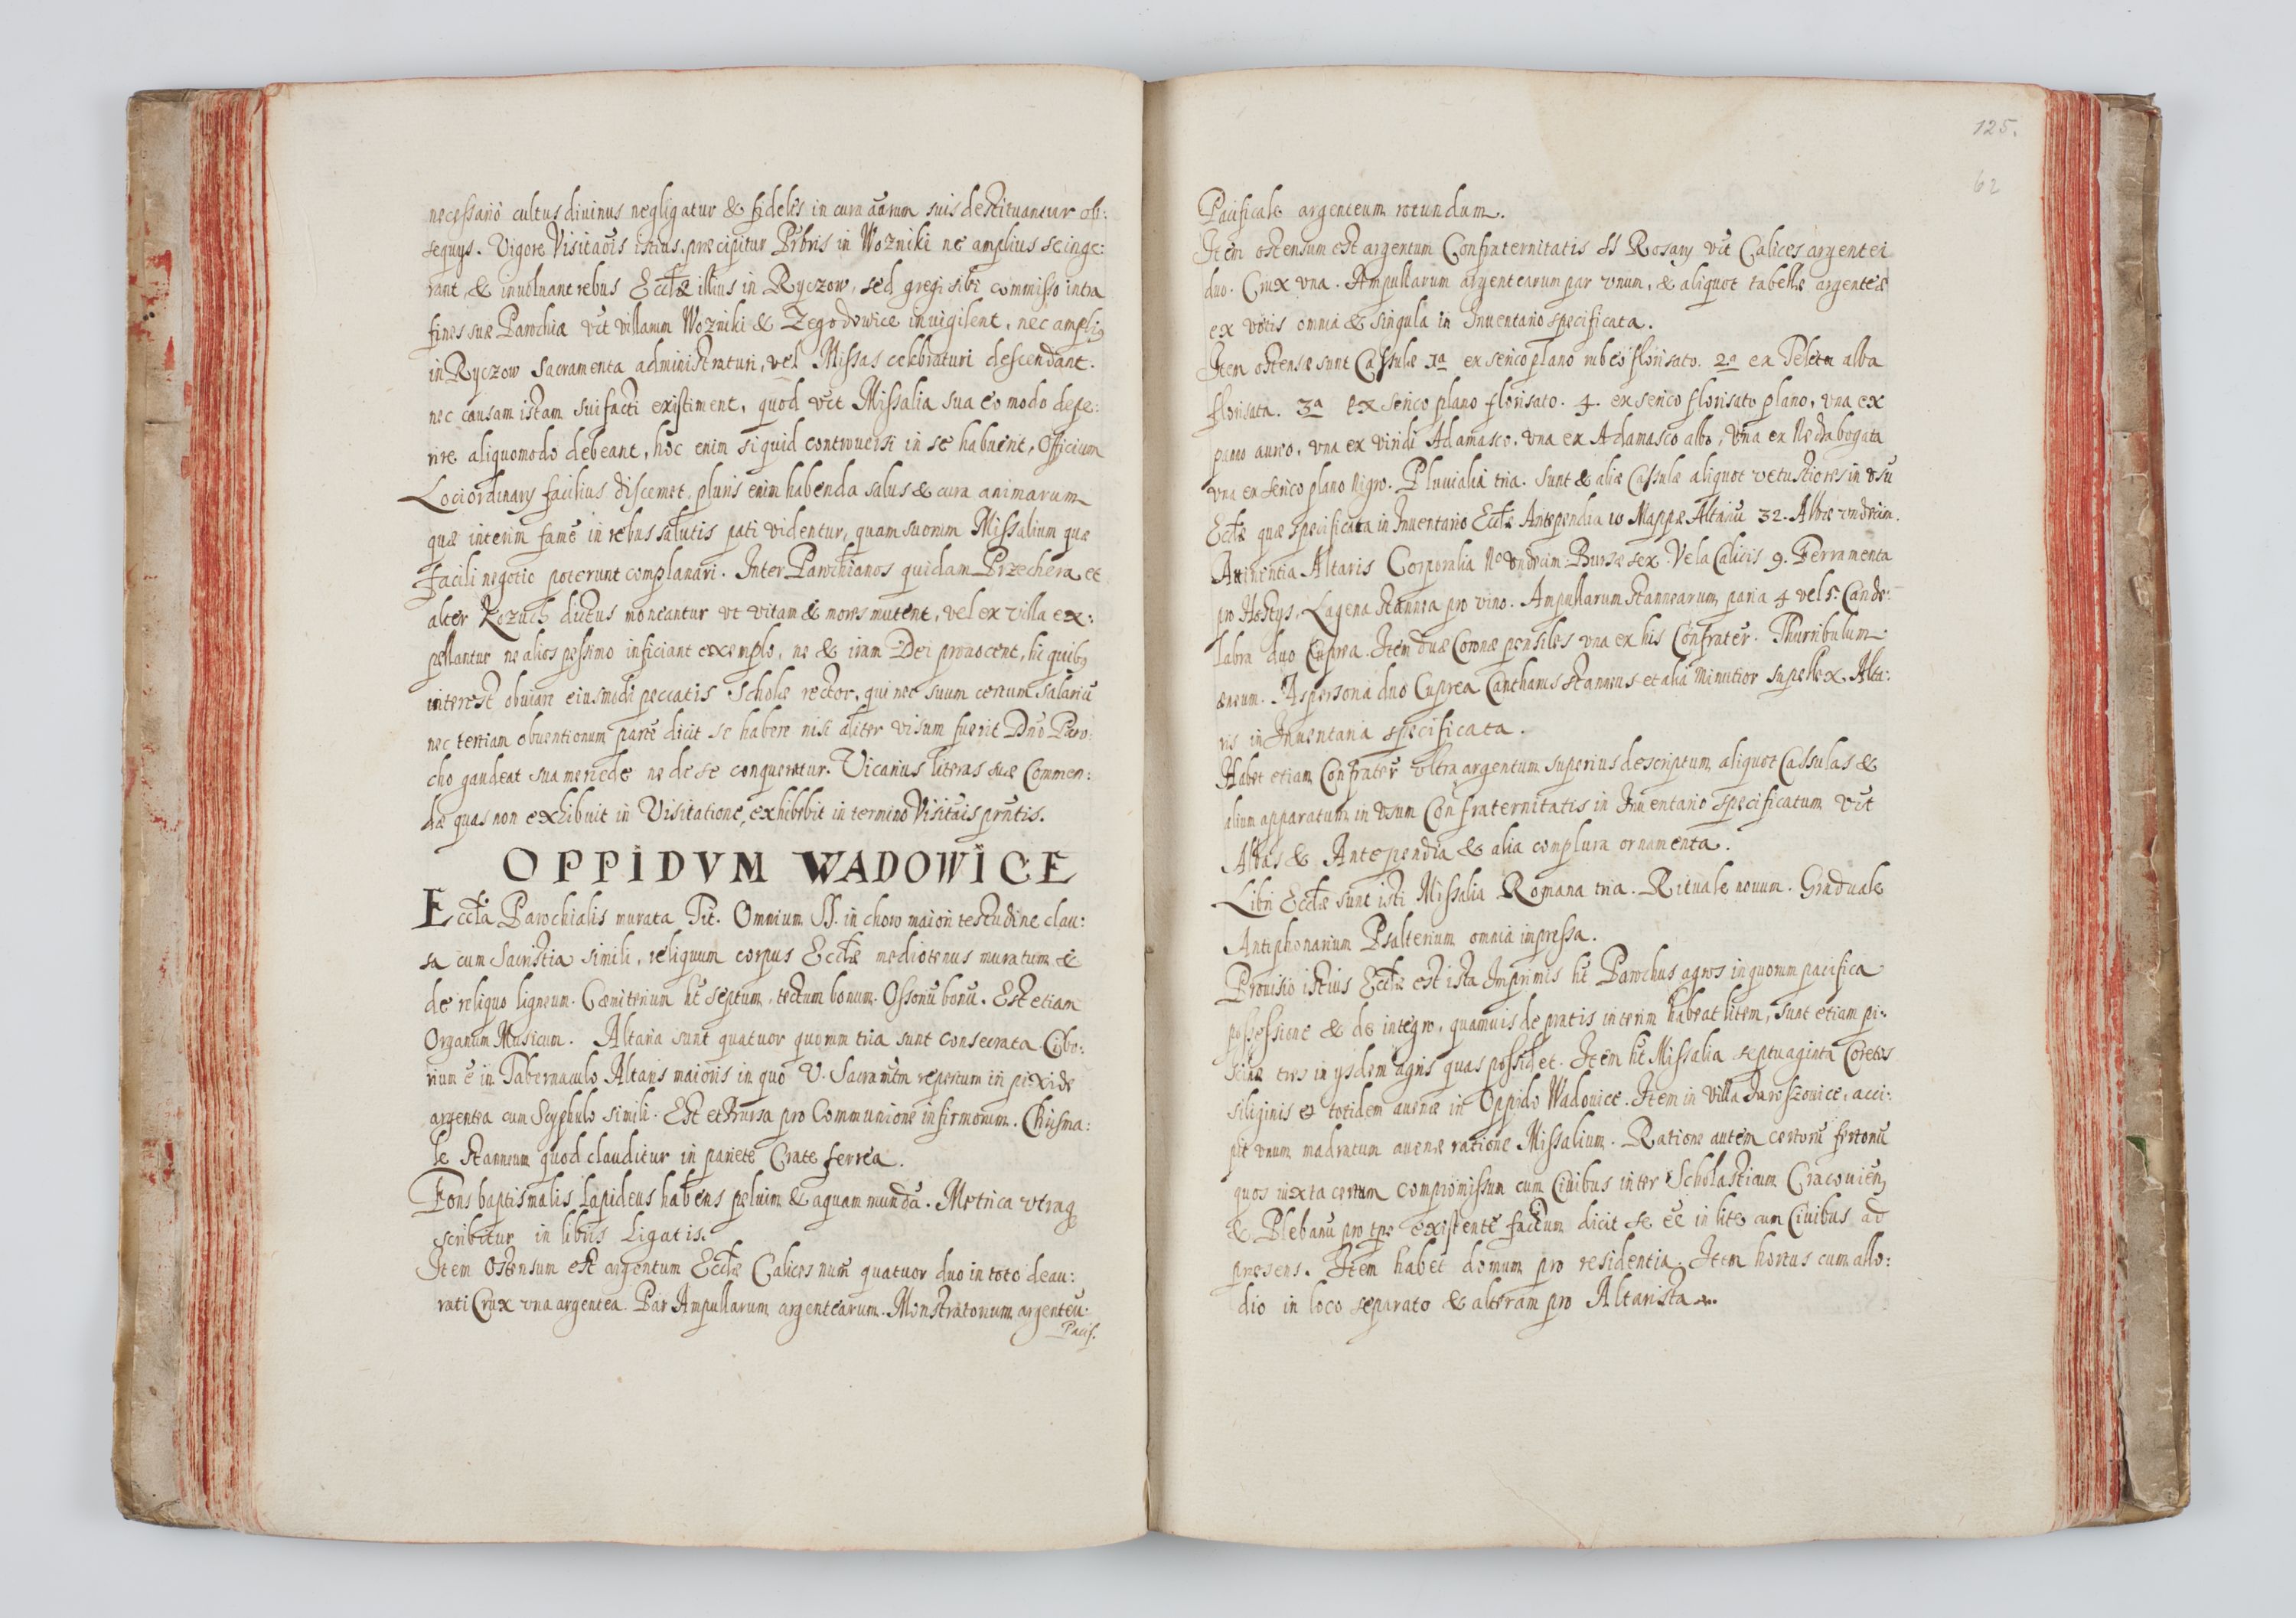 necessario cultus diuinus negligatur & fideles in cura aarum suis destituantur ob:
sequys. Vigore Visitaõis istius præcipitur Prbris in Wozniki ne amplius se inge:
rant, & inuoluant rebus Eccłæ illius in Ryczow, sed gregi sibi commisso intra
fines suæ Parochiæ vct villarum Wozniki & Zegodowice inuigilent, nec ampliꝰ
in Ryczow Sacramenta administraturi, vel Missas celebraturi descendant.
nec causam istam sui facti existiment, quod vct Missalia sua eo modo depe:
rire aliquomodo debeant, hoc enim si quid controuersi in se habuerit, Officium
Loci ordinary facilius discernet, pluris enim habenda salus & cura animarum
quæ interim fame in rebus salutis pati videntur, quam suorum Missalium quæ
facili negotio poterunt complanari. Inter Parochianos quidam Przechera et
alter Kozuch dictus moneantur vt vitam & mores mutent, vel ex villa ex:
pellantur ne alios pessimo inficiant exemplo, ne & iram Dei prouocent, hic quibꝰ
interest obuiare eiusmodi peccatis Scholæ rector, qui nec suum certum salariũ
nec tertiam obuentionum partẽ dicit se habere nisi aliter visum fuerit Dño Paro:
cho gaudeat sua mercede ne de se conqueratur. Vicarius literas suæ Commen:
dæ quas non exhibuit in Visitatione, exhibebit in termino Visitãis prñtis.
OPPIDVM WADOWICE
Eccła Parochialis murata Tit. Omnium SS. in choro maiori testudine clau:
sa cum Sacristia simili, reliquum corpus Eccłæ mediotenus muratum &
de reliquo ligneum. Cæmiterium ht septum, tectum bonum. Ossoriũ bonũ. Est etiam
Organum Musicum. Altaria sunt quatuor quorum tria sunt consecrata. Cibo:
rium ẽ in Tabernaculo Altaris maioris in quo V. Sacramtm repertum in pixide
argentea cum Scyphulo simili. Est et Bursa pro Communione infirmorum. Chrisma:
le stanneum quod clauditur in pariete Crate ferrea.
Fons baptismalis Lapideus habens peluim & aquam mundã. Metrica vtraq
scribitur in libris Ligatis.
Item Ostensum est argentum Eccłæ Calices num̃ quatuor duo in toto deau:
rati Crux vna argentea. Par Ampullarum argentearum. Monstratorium argenteũ.
Pacif.
125.
62
Pacificale argenteum rotundum.
Item ostensum est argentum Confraternitatis SS Rosary vct Calices argentei
duo. Crux vna. Ampullarum argentearum par vnum, & aliquot tabellæ argenteæ
ex votis omnia & singula in Inuentario specificata.
Item ostensæ sunt Casulæ 1a ex serico plano rubeo florisato. 2.a ex Teletta alba
florisata. 3a ex serico plano florisato. 4. ex serico florisato plano, vna ex
panno aureo, vna ex viridi Adamasco, vna ex Adamasco albo, vna ex
vna ex serico plano nigro. Pluuialia tria. Sunt & aliæ Casulæ aliquot vetustiores in vsu
Eccłæ quæ specificata in Inuentario Eccłæ Antependia 10 Mappæ Altariũ 32. Albæ vndecim.
Attinentia Altaris Corporalia No vndecim Bursæ sex. Vela Calicis 9. Ferramenta
pro Hostys. Lagena stannea pro vino. Ampullarum stannearum paria 4 vel 5. Cande:
labra duo Cuprea. Item duæ Coronæ pensiles vna ex his Confrater. Thurribulum
æneum. Aspersoria duo Cuprea Cantharus stanneus et alia minutior supellex Alta:
ris in Inuentaria specificata.
Habet etiam Confrater vltra argentum superius descriptum aliquot Cassulas &
alium apparatum in vsum Confraternitatis in Inuentario specificatum vct
Albas & Antependia & alia complura ornamenta.
Libri Eccłæ sunt isti Missalia Romana tria. Rituale nouum. Graduale
Antiphonarium Psalterium omnia impressa.
Prouisio istius Eccłæ est ista Imprimis ht Parochus agros in quorum pacifica
possessione & de integro, quamuis de pratis interim habeat litem, sunt etiam pi:
scinæ tres in ysdem agris quas possidet. Item ht Missalia septuaginta Coretos
siliginis et totidem auenæ in Oppido Wadouice. Item in villa Jaroszouice, acci:
pit vnum madratum auenæ ratione Missalium. Ratione autem certorũ fertonũ
quos iuxta certum compromissum cum Ciuibus inter Scholasticum Cracouien̄
& Plebanũ pro tpre existentẽ factum dicit se ẽẽ in lite cum Ciuibus ad
præsens. Item habet domum pro residentia. Item hortus cum allo:
dio in loco separato & alteram pro Altarista